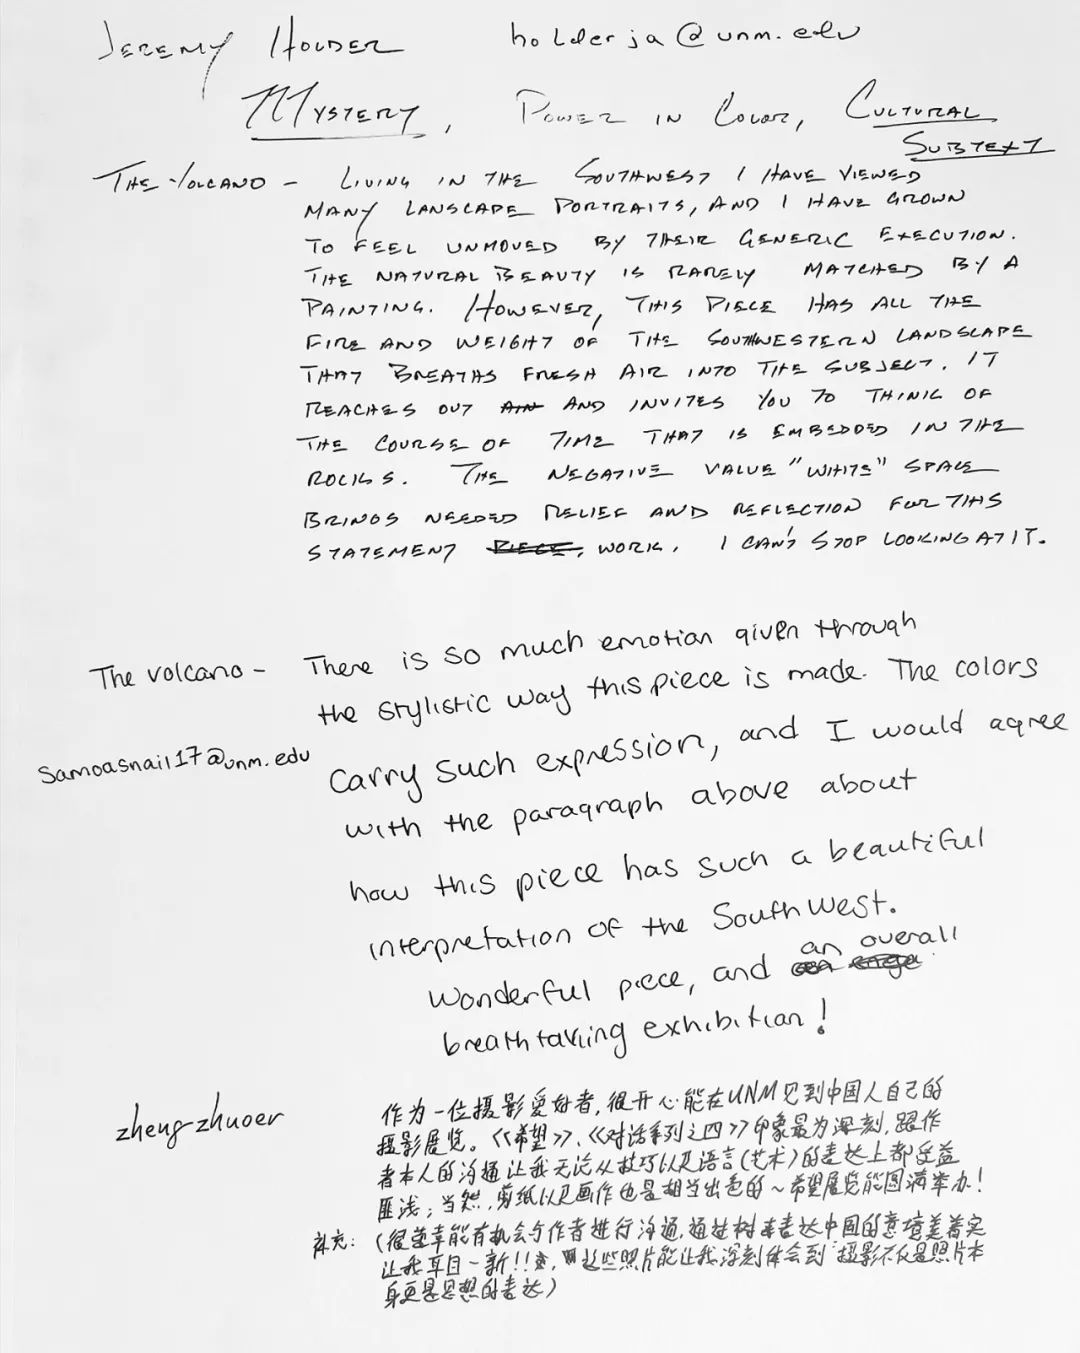 JEREMY HOLDER holderja@unm.edu
MYSTERY, POWER IN COLOR, CULTURAL
SUBTEXT
THE VOLCANO – LIVING IN THE SOUTHWEST I HAVE VIEWED
MANY LANSCAPE PORTRAITS, AND I HAVE GROWN
TO FEEL UNMOVED BY THEIR GENERIC EXECUTION.
THE NATURAL BEAUTY IS RARELY MATCHED BY A
PAINTING. HOWEVER, THIS PIECE HAS ALL THE
FIRE AND WEIGHT OF THE SOUTHWESTERN LANDSCAPE
THAT BREATHS FRESH AIR INTO THE SUBJECT. IT
REACHES OUT AIN AND INVITES YOU TO THINK OF
THE COURSE OF TIME THAT IS EMBEDDED IN THE
ROCKS. THE NEGATIVE VALUE "WHITE" SPACE
BRINGS NEEDED RELIEF AND REFLECTION FOR THIS
STATEMENT PIECE, WORK. I CAN'T STOP LOOKING AT IT.
The volcano – There is so much emotion given through
the stylistic way this piece is made. The colors
Samoasnail17@unm.edu carry such expression, and I would agree
with the paragraph above about
how this piece has such a beautiful
interpretation of the SouthWest.
Wonderful piece, and an overall
breathtaking exhibition!
zhengzhuoer 作为一位摄影爱好者,很开心能在UNM见到中国人自己的
摄影展览。《希望》、《对话系列之四》印象最为深刻,跟作
者本人的沟通让我无论从技巧以及语言(艺术)的表达上都受益
匪浅;当然,剪纸以及画作也是相当出色的~希望展览能圆满举办!
补充:(很荣幸能有机会与作者进行沟通,通过树来表达中国的意境美着实
让我耳目一新!!,这些照片能让我深刻体会到摄影不仅是照片本
身更是思想的表达)